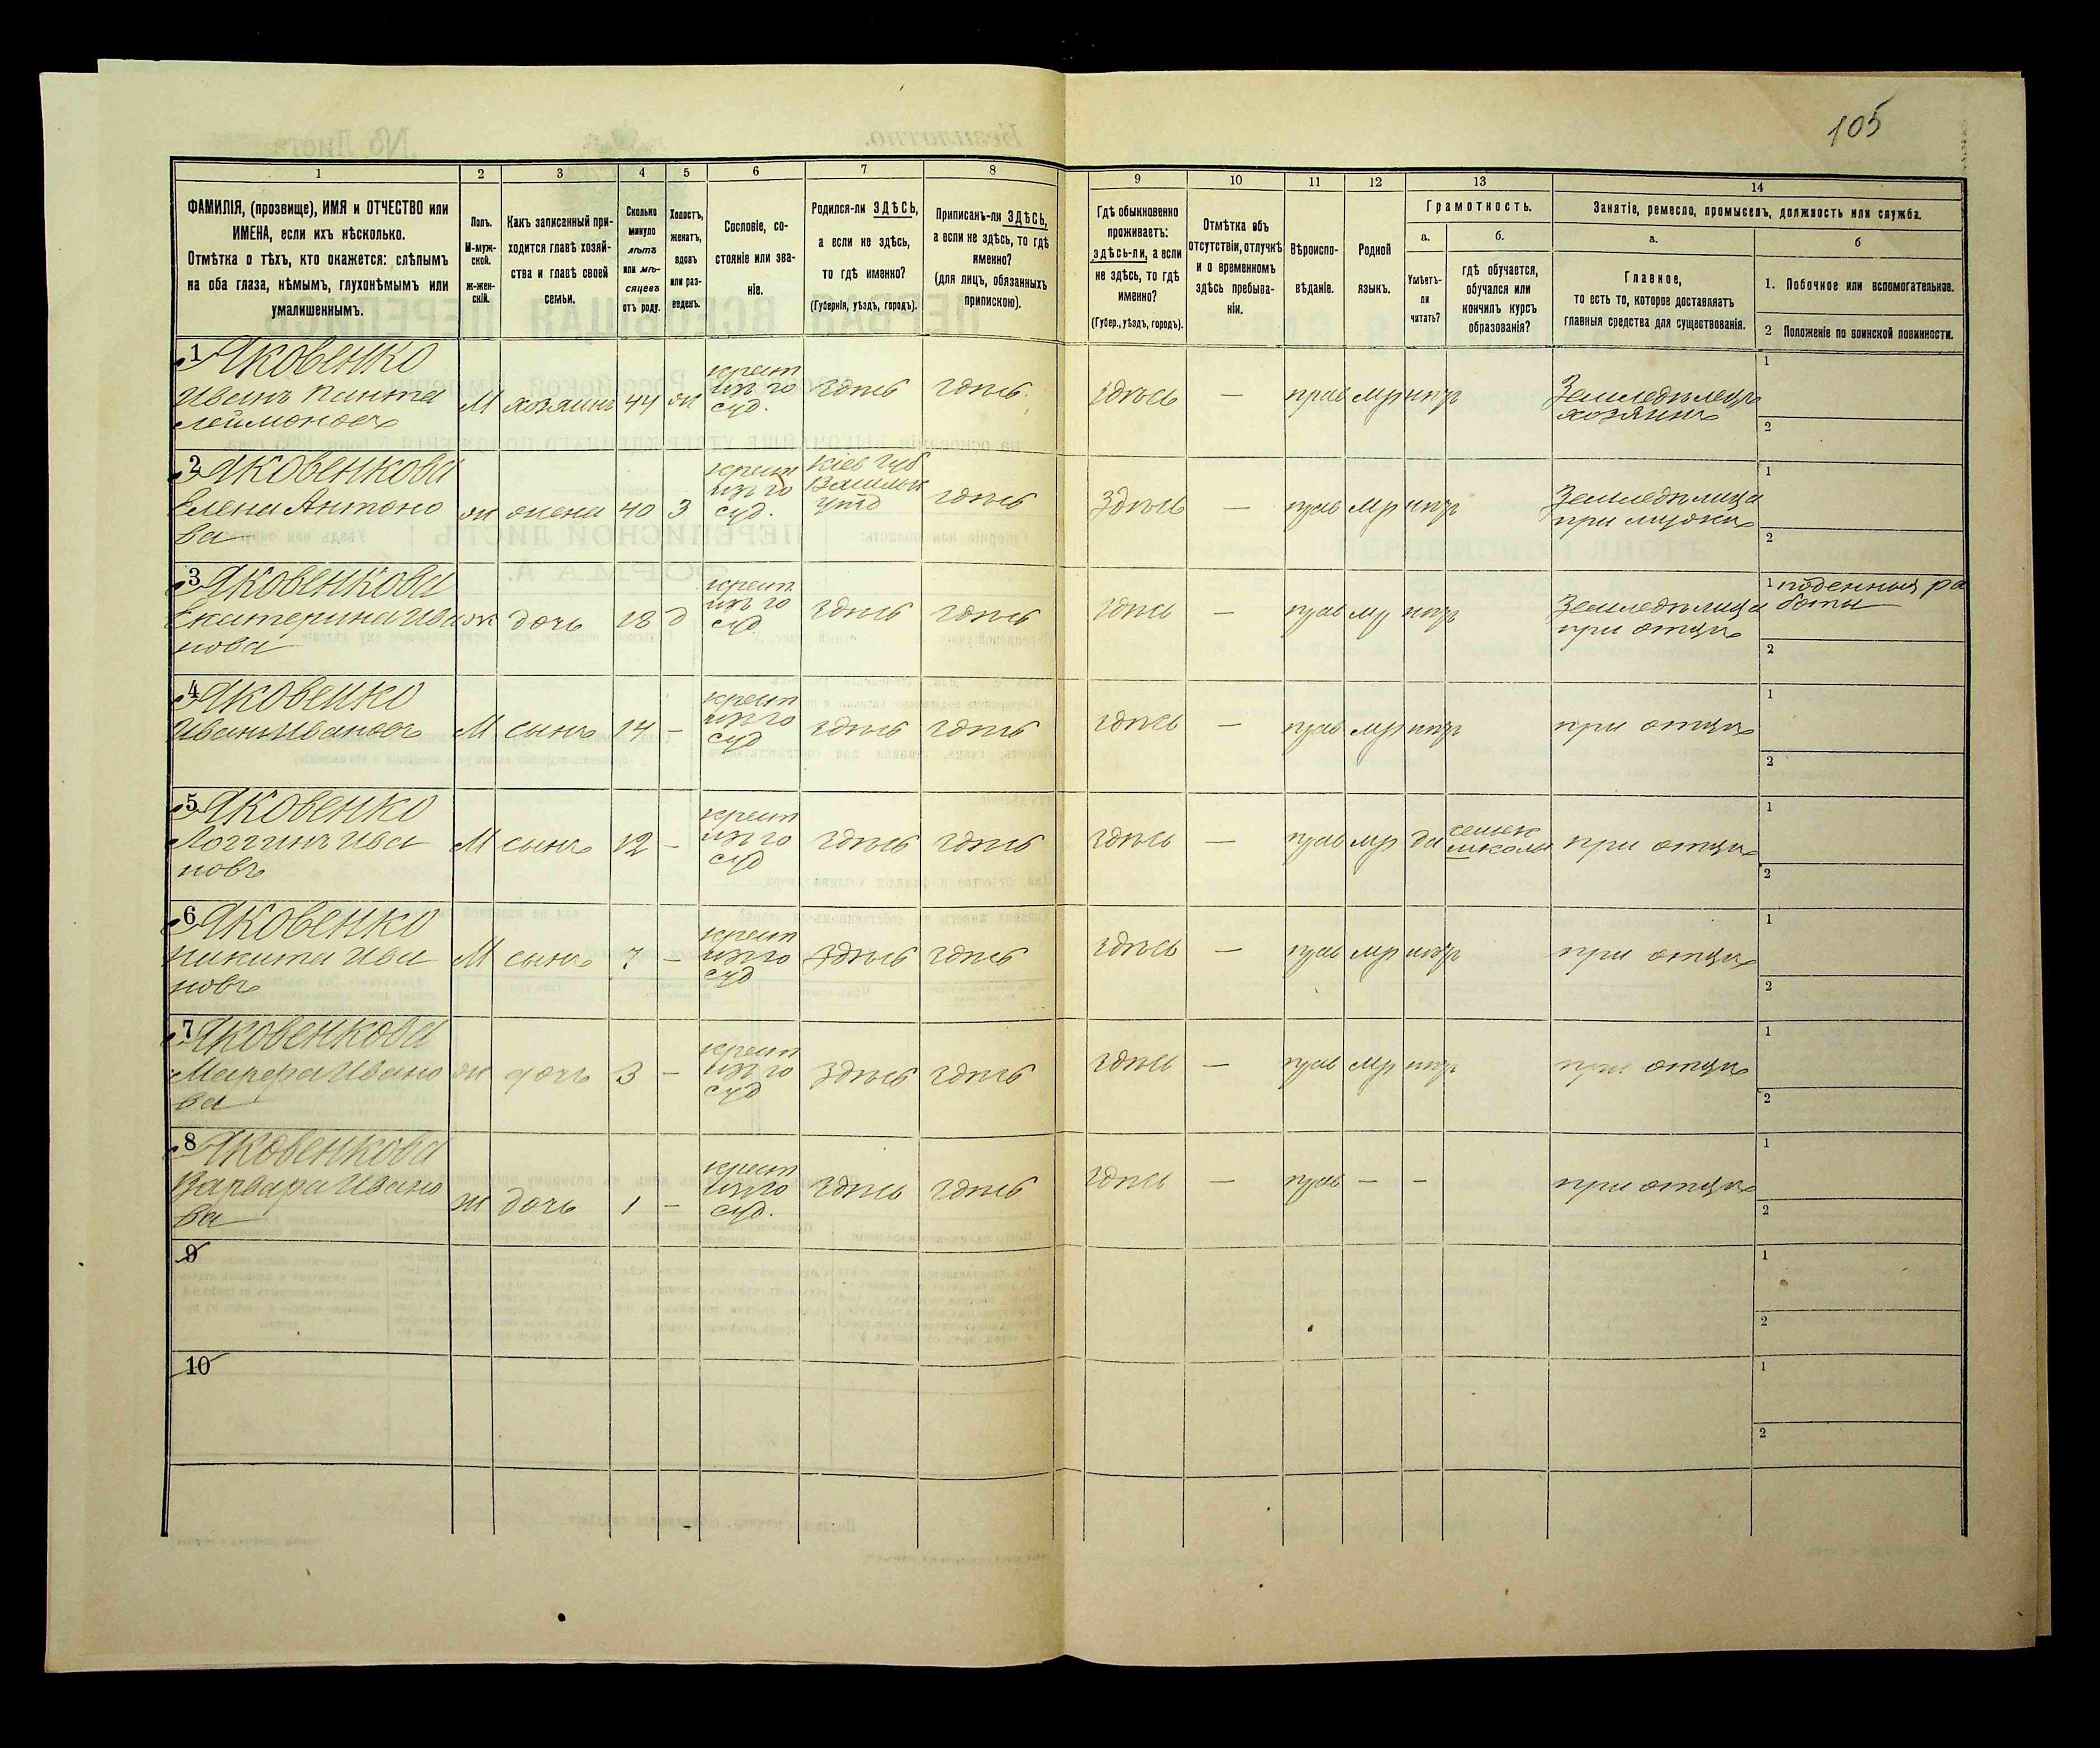 105
1 2 3 4 5 6 7 8 9 10 11 12 13 14
ФАМИЛІЯ, (прозвище), ИМЯ и ОТЧЕСТВО или
ИМЕНА, если ихъ нѣсколько.
Отмѣтка о тѣхъ, кто окажется: слѣпымъ
на оба глаза, нѣмымъ, глухонѣмымъ или
умалишеннымъ.
Полъ.
М-муж-
ской.
Ж-жен-
скій.
Какъ записанный при-
ходится главѣ хозяй-
ства и главѣ своей
семьи.
Сколько
минуло
лѣтъ
или мѣ-
сяцевъ
отъ роду.
Холостъ,
женатъ,
вдовъ
или раз-
веденъ.
Сословіе, со-
стояніе или зва-
ніе.
Родился-ли ЗДѢСЬ,
а если не здѣсь,
то гдѣ именно?
(Губернія, уѣздъ, городъ).
Приписанъ-ли ЗДѢСЬ,
а если не здѣсь, то гдѣ
именно?
(для лицъ, обязанныхъ
припискою).
Гдѣ обыкновенно
проживаетъ:
здѣсь-ли, а если
не здѣсь, то гдѣ
именно?
(Губер., уѣздъ, городъ).
Отмѣтка объ
отсутствіи, отлучкѣ
и о временномъ
здѣсь пребыва-
ніи.
Вѣроиспо-
вѣданіе.
Родной
языкъ.
Грамотность.
а.
Умѣетъ-
ли
читать?
б.
гдѣ обучается,
обучался или
кончилъ курсъ
образованія?
Занятіе, ремесло, промыселъ, должность или служба.
а.
Главное,
то есть то, которое доставляетъ
главныя средства для существованія.
б
1. Побочное или вспомогательное.
2 Положеніе по воинской повинности.
1 Яковенко
Иванъ Панта
леймоновъ
М хозяинъ 44 ж
крест
изъ го
суд.
здѣсь здѣсь здѣсь — прав мр нѣт
Земледѣлецъ
хозяинъ
1
2
2 Яковенкова
Елена Антоно
ва
ж жена 40 З
крест
изъ го
суд.
Кіев губ
Васильк
уѣзд
здѣсь Здѣсь — прав мр нѣт
Земледѣлица
при мужѣ
1
2
3 Яковенкова
Екатерина Ива
нова
ж дочь 18 д
крест
изъ го
суд
здѣсь здѣсь здѣсь — прав мр нѣт
Земледѣлица
при отцѣ
1 поденныя ра
боты
2
4 Яковенко
Иванъ Ивановъ
М сынъ 14 –
крест
изъ го
суд
здѣсь здѣсь здѣсь — прав мр нѣт при отцѣ
1
2
5 Яковенко
Логгинъ Ива
новъ
М сынъ 12 –
крест
изъ го
суд
здѣсь здѣсь здѣсь — прав мр да
сельск
школы
при отцѣ
1
2
6 Яковенко
Никита Ива
новъ
М сынъ 7 –
крест
изъ го
суд
здѣсь здѣсь здѣсь — прав мр нѣт при отцѣ
1
2
7 Яковенкова
Марфа Ивано
ва
ж дочь 3 –
крест
изъ го
суд
Здѣсь здѣсь здѣсь — прав мр нѣт при отцѣ
1
2
8 Яковенкова
Варвара Ивано
ва
ж дочь 1 –
крест
изъ го
суд.
здѣсь здѣсь здѣсь — прав – – при отцѣ
1
2
9
1
2
10
1
2